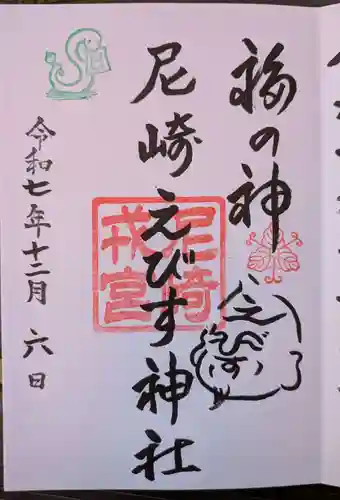 福の神
えびす
尼崎えびす神社
尼崎
戎宮
令和七年十二月六日